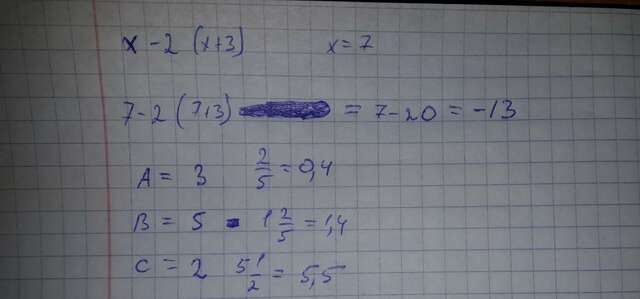 x - 2 (x+3) x = 7
7 - 2 (7+3) = 7 - 20 = -13
A = 3 2/5 = 0,4
B = 5 - 1 2/5 = 1,4
C = 2 5 1/2 = 5,5